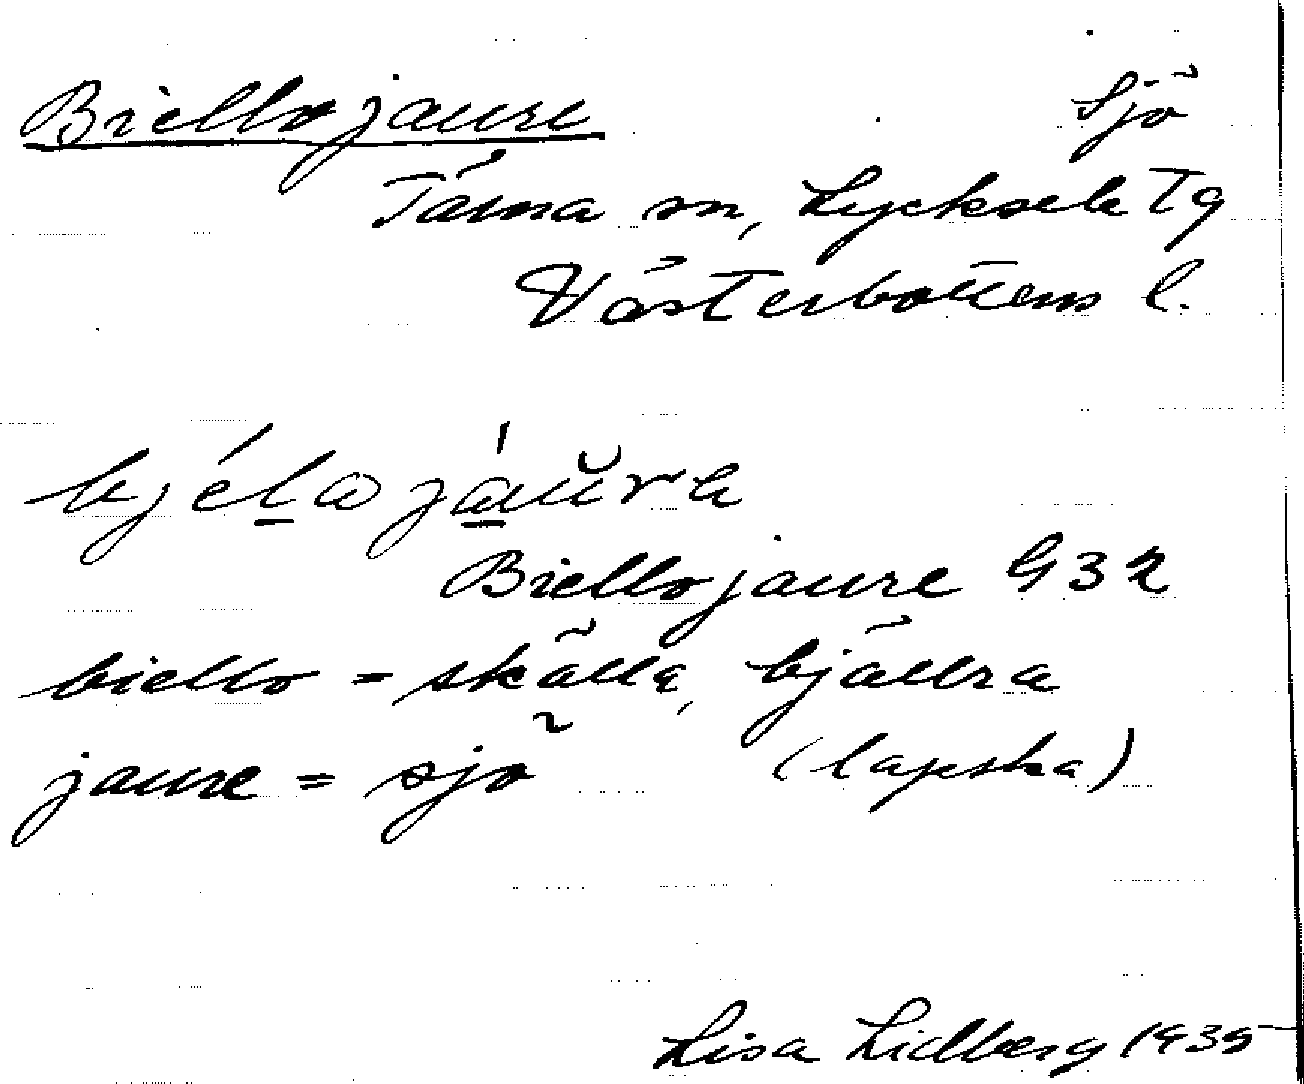 Biellojaure Sjö
Tärna sn, Lycksele Tg
Västerbottens l.
bjélojáŭra
Biellojaure G32
biello = skälla, bjällra
jaure = sjö (lapska)
Lisa Lidberg 1935